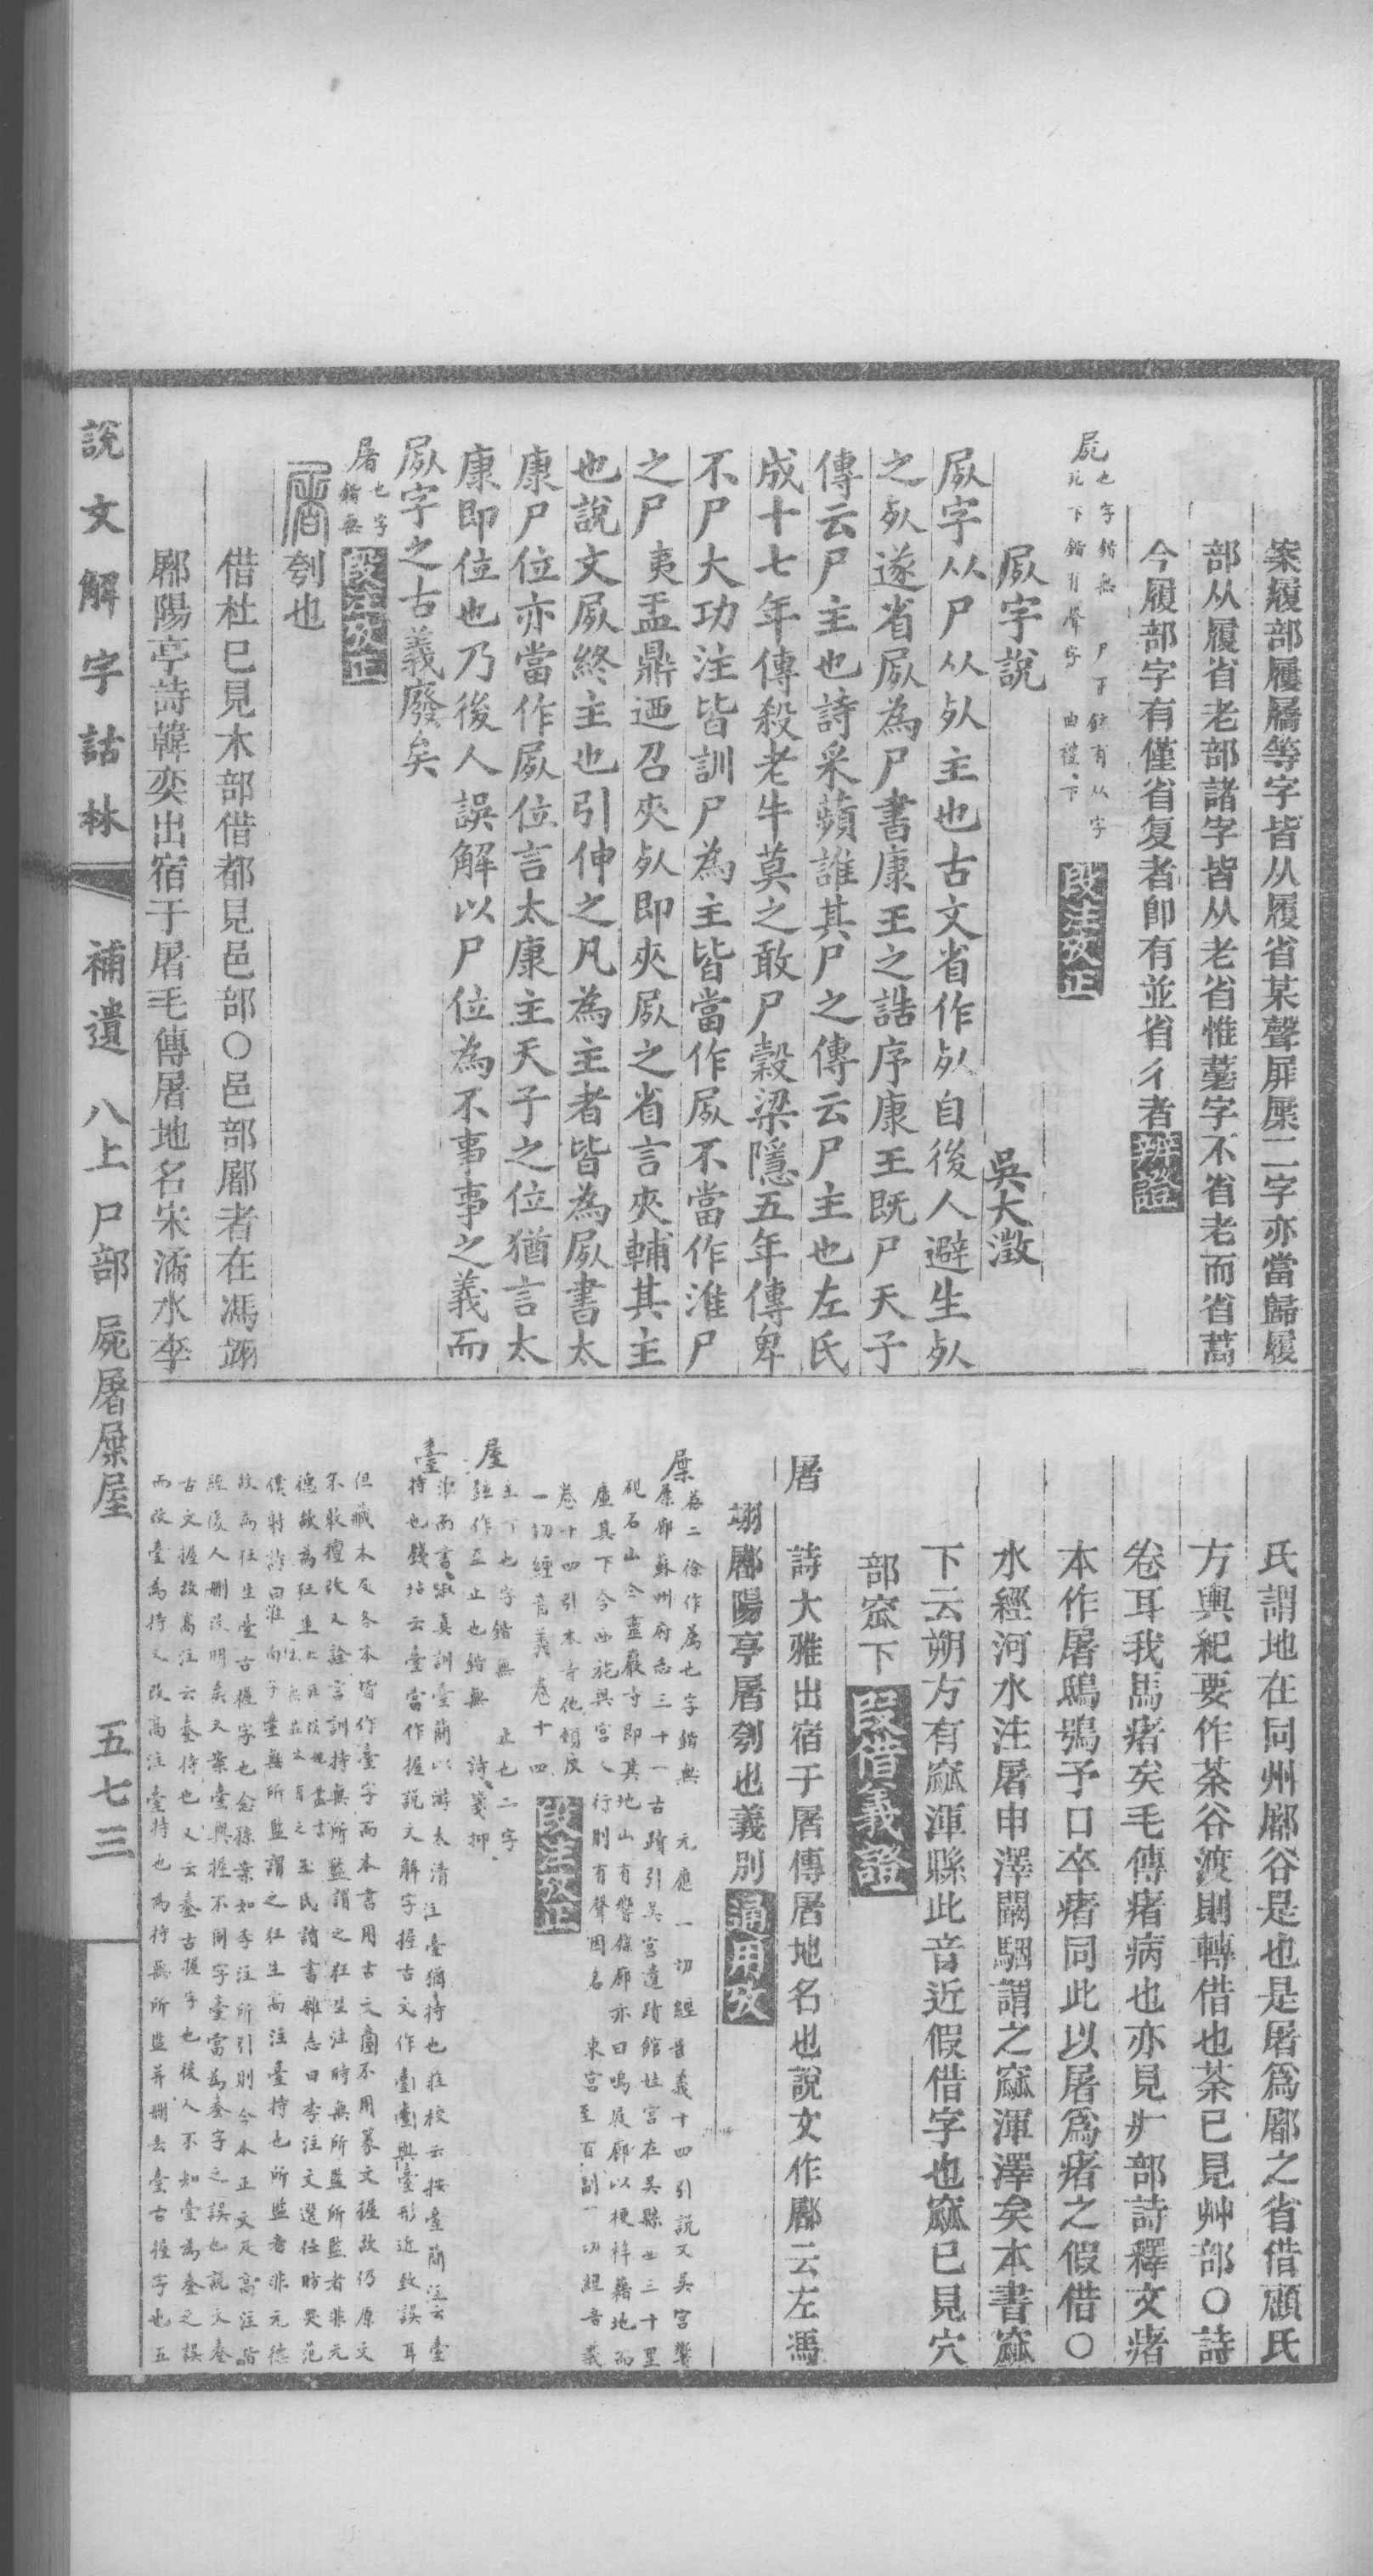 案履部屨屩等字皆从履省某聲屏屟二字亦當歸履
部从履省老部諸字皆从老省惟薹字不省老而省蒿
今履部字有僅省复者卽有並省彳者辨證
屍也字鍇無 尸下鍇有从字
死下鍇有聲字 曲禮下 段注攷正
屍字說 吳大澂
屍字从尸从死主也古文省作死自後人避生死
之死遂省屍為尸書康王之誥序康王既尸天子
傳云尸主也詩采蘋誰其尸之傳云尸主也左氏
成十七年傳殺老牛莫之敢尸穀梁隱五年傳卑
不尸大功注皆訓尸為主皆當作屍不當作淮尸
之尸夷盂鼎迺召夾死即夾屍之省言夾輔其主
也說文屍終主也引伸之凡為主者皆為屍書太
康尸位亦當作屍位言太康主天子之位猶言太
康即位也乃後人誤解以尸位為不事事之義而
屍字之古義廢矣
屠也字鍇無 段注攷正
屠刳也
借杜巳見木部借都見邑部○邑部鄜者在馮翊
鄏陽亭詩韓奕出宿于屠毛傳屠地名宋潏水李
氏謂地在同州鄜谷是也是屠爲鄜之省借顧氏
方輿紀要作荼谷渡則轉借也荼已見艸部○詩
卷耳我馬瘏矣毛傳瘏病也亦見疒部詩釋文瘏
本作屠鴟鴞予口卒瘏同此以屠爲瘏之假借○
水經河水注屠申澤闞駰謂之窳渾澤矣本書窳
下云朔方有窳渾縣此音近假借字也窳已見穴
部窳下 假借義證
屠 詩大雅出宿于屠傳屠地名也說文作鄜云左馮
翊鄜陽亭屠刳也義別通用攷
屟卷二徐作屧也字鍇無 元應一切經音義十四引說文吳宮響
屟廊蘇州府志三十一古蹟引吳宮遺蹟館娃宮在吳縣西三十里
硯石山今靈巖寺即其地山有響屧廊亦曰鳴屐廊以梗梓藉地而
虛其下今西施與宮人行則有聲因名 東宮至百副一切經音義
卷十四引本寺他頰反
一切經音義卷十四 段注攷正
屋主下也字鍇無 止也二字
鉉作至止也鍇無 詩箋抑
臺淮南書俶真訓臺簡以游太清注臺猶持也莊校云按臺簡注云臺
持也錢坫云臺當作握說文解字握古文作臺臺與臺形近致誤耳
但藏本及各本皆作臺字而本書用古文臺不用篆文握故仍原文
不敢擅改又詮言訓持無所監謂之狂生注持無所監所監者非元
德故為狂生
僕射詩曰
故為狂生臺古握字也念孫案如李注所引則今本正文及高注皆
經後人刪改明矣又案臺與握不同字臺當為臺字之誤也說文臺
古文握故高注云臺持也又云臺古握字也後人不知臺為臺之誤
而改臺為持又改高注臺持也為持無所監并刪去臺古握字也五
說文解字詁林 補遺 八上尸部 屍屠屟屋 五七三